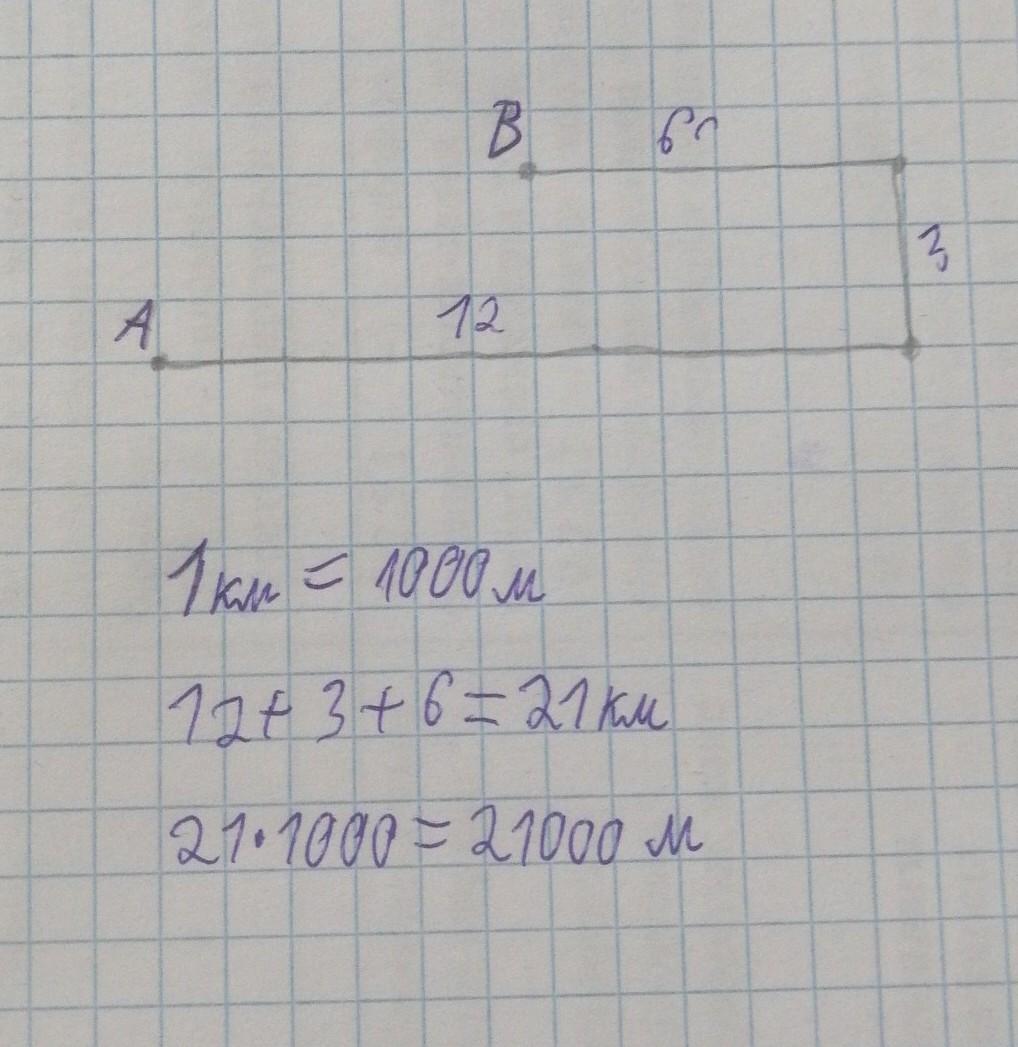 B 6
3
A 12
1км = 1000м
12+3+6=21км
21·1000=21000 м